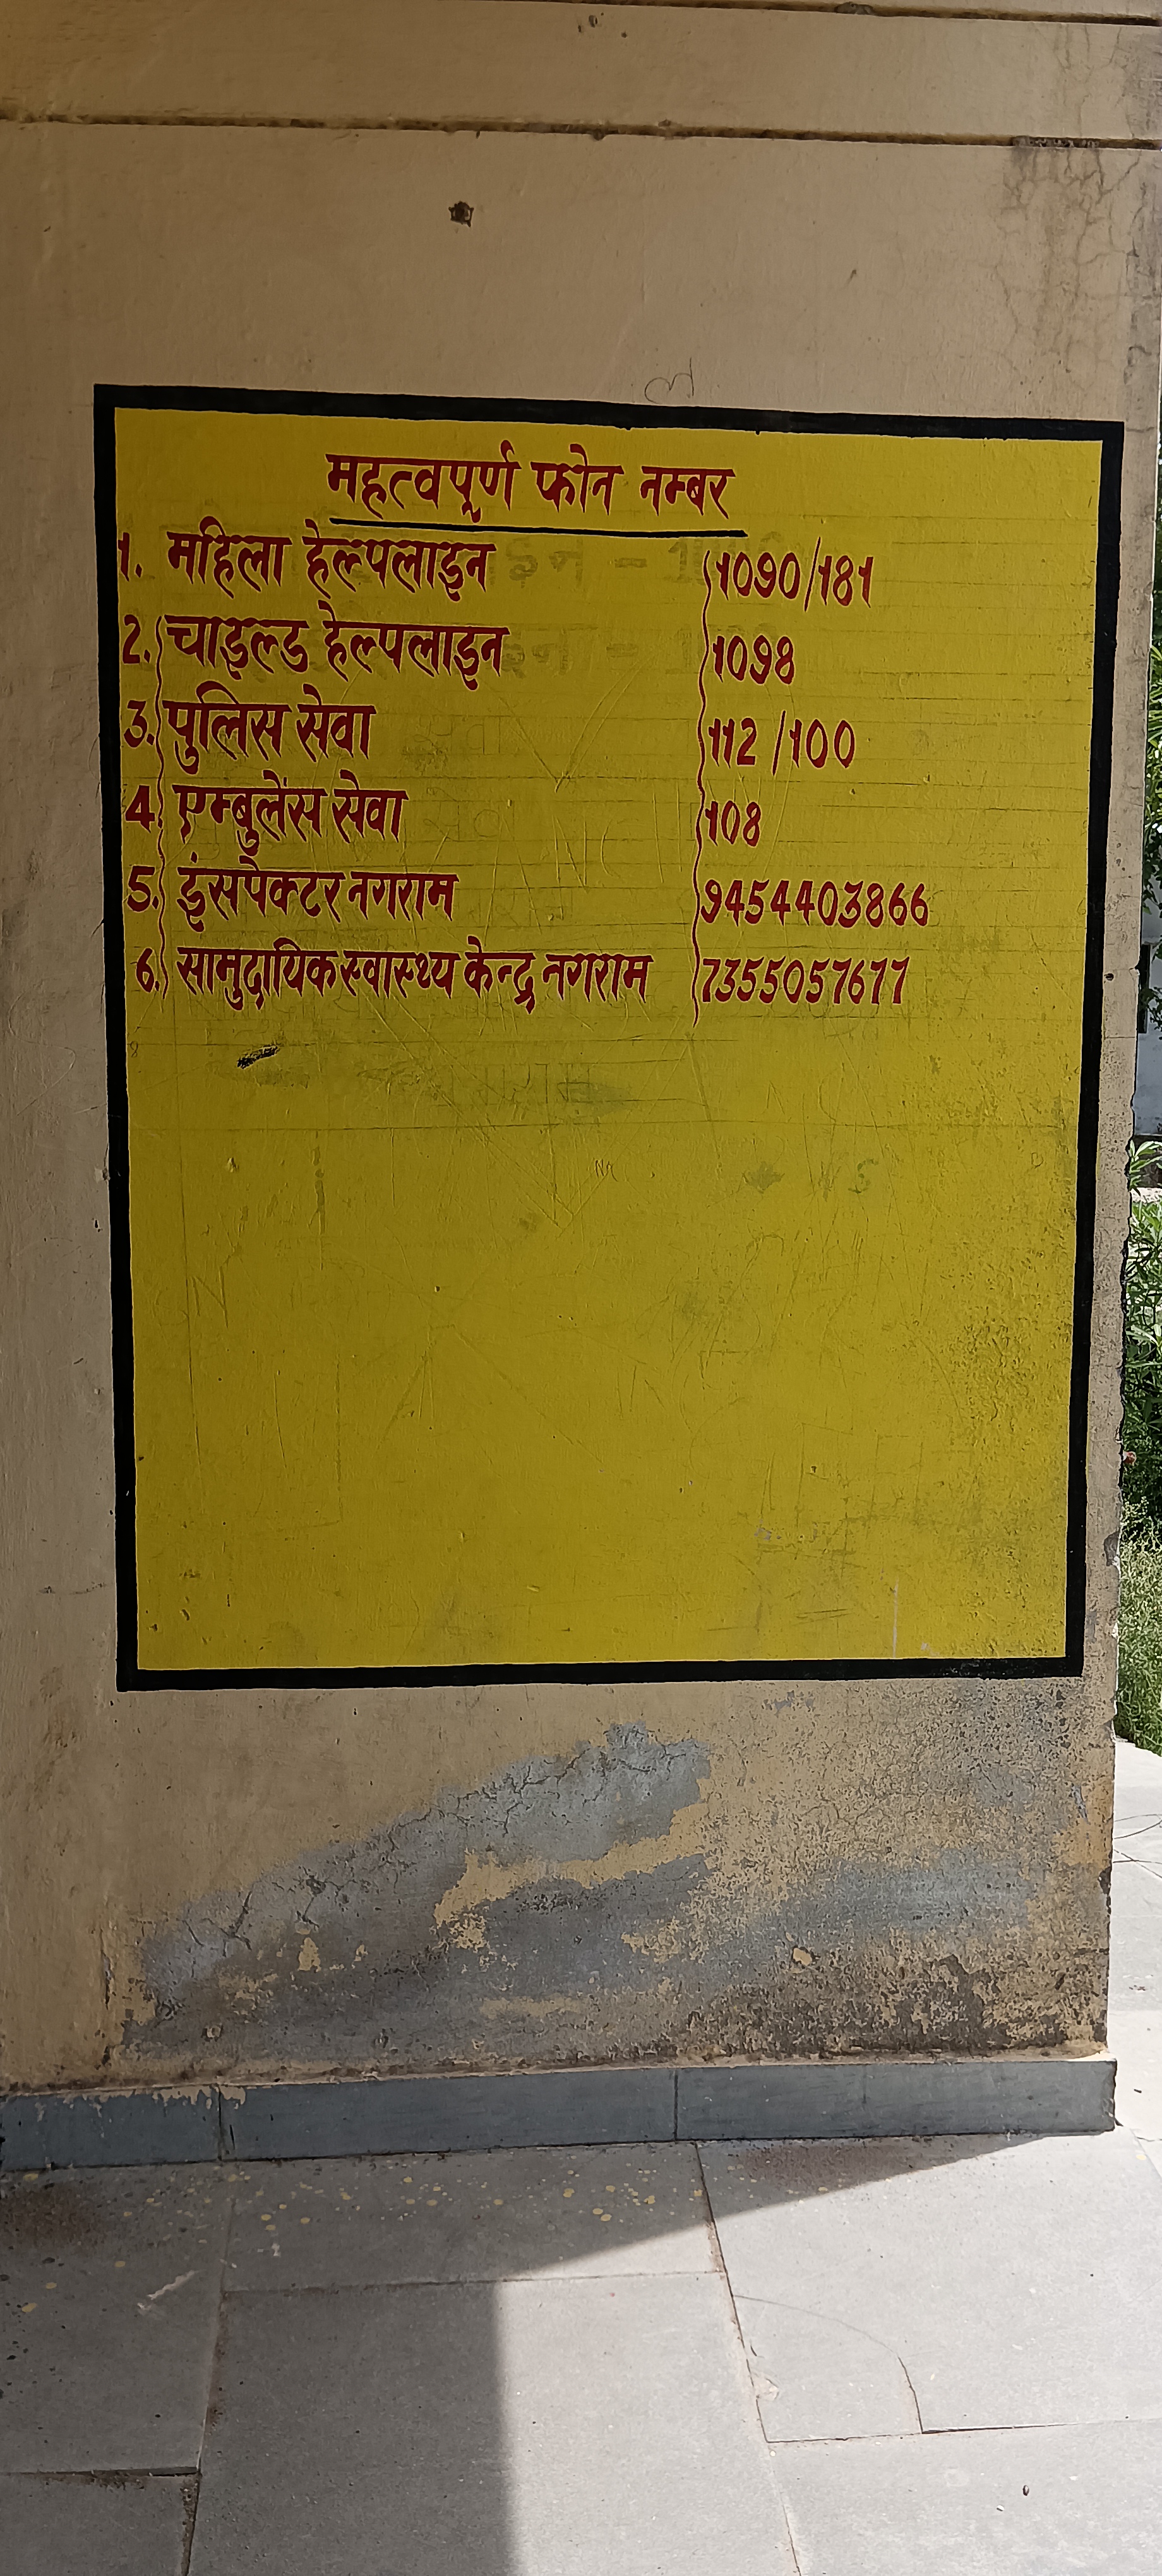 महत्वपूर्ण फोन नम्बर
1. महिला हेल्पलाइन 1090/181
2. चाइल्ड हेल्पलाइन 1098
3. पुलिस सेवा 112/100
4. एम्बुलेंस सेवा 108
5. इंसपेक्टर नगराम 9454403866
6. सामुदायिक स्वास्थ्य केन्द्र नगराम 7355057677